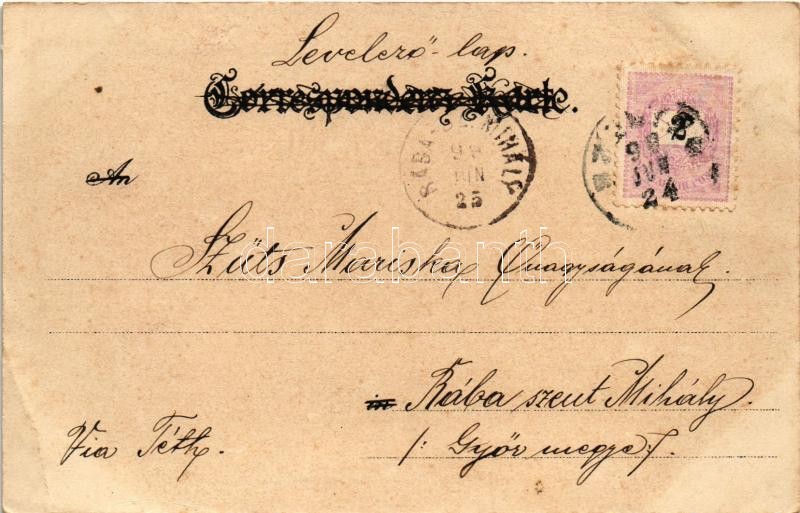 Levelező-lap.
Correspondenz-Karte.
RÁBA-SZ.MIHÁLY
98
JUN
25
2
98
JUN
24
An
Szüts Mariska Őnagyságának.
darabanth
in Rába szent Mihály.
Via Téth.
/: Győr megye :/